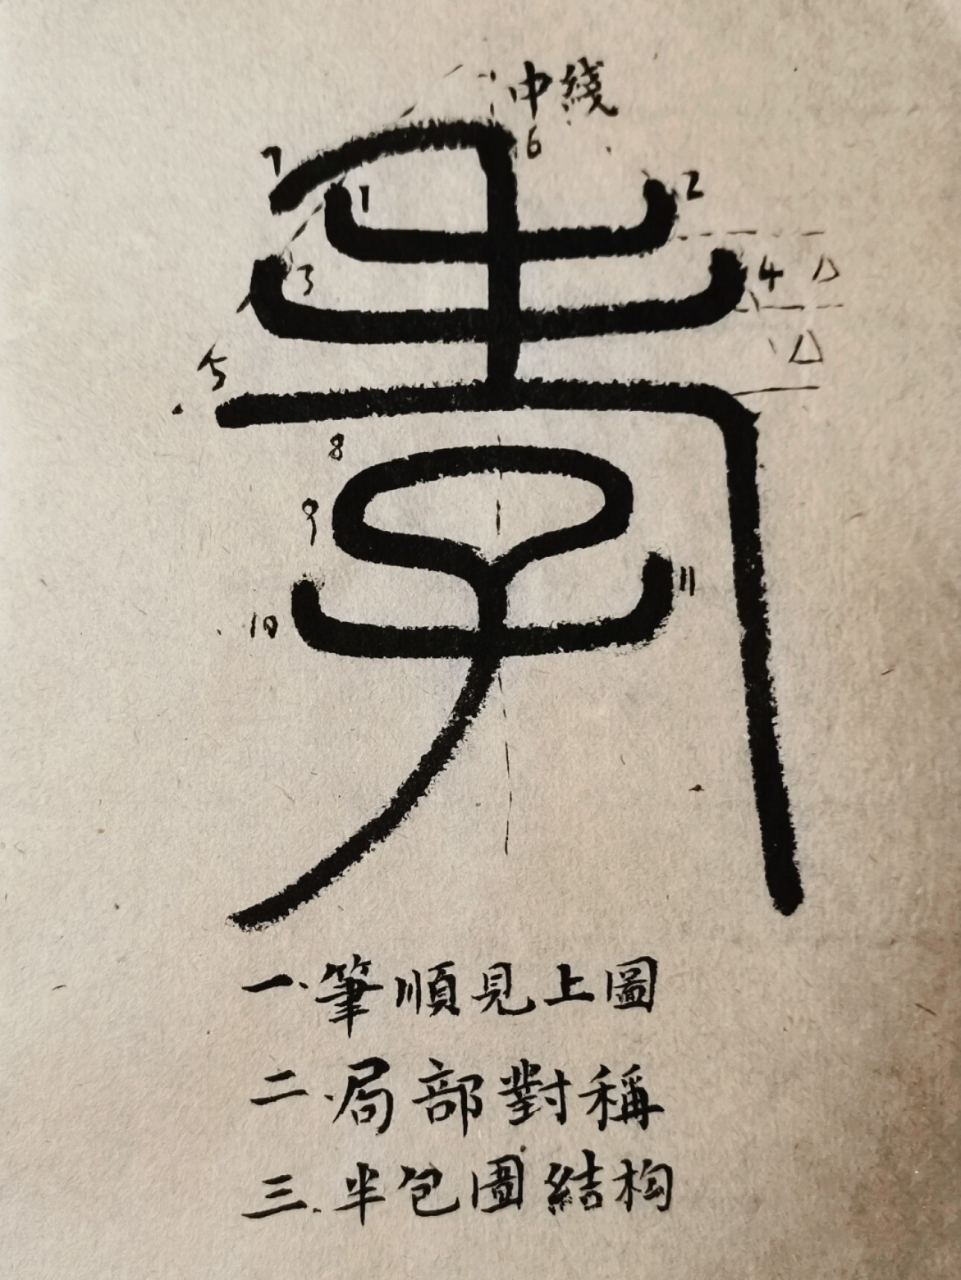 中綫
7 6
1 2
3 4 △
5 △
孝
8
9
10 11
一.筆順見上圖
二.局部對稱
三.半包圖結构